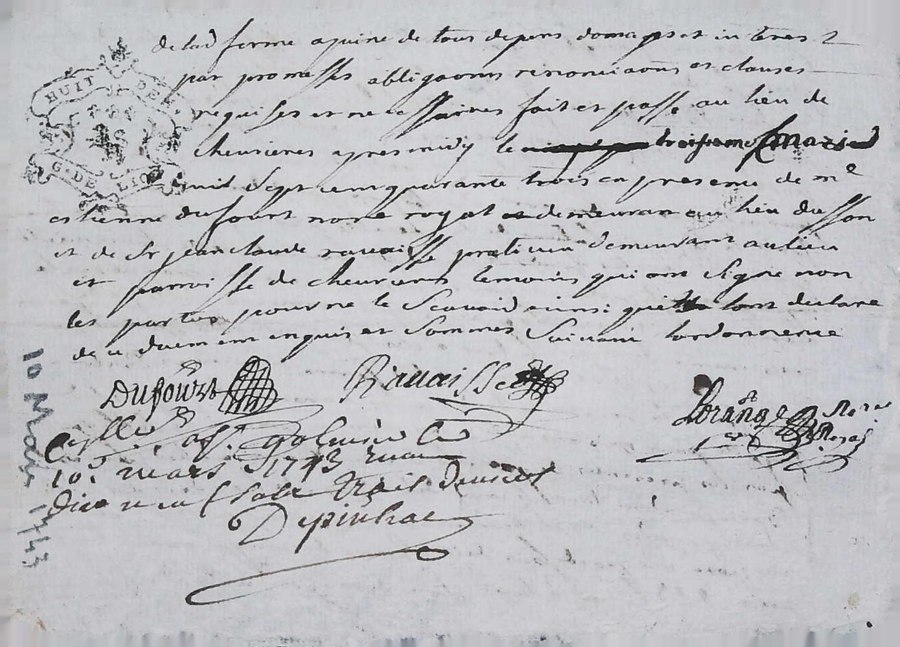 de lad ferme apeine de tous depens domages et interest
par promesses obligaõns renonciaõns et clauses
requises et necessaires fait et passe au lieu de
chevrieres apres midy le troisieme mars
mil sept cent quarante trois en presence de mᵉ
estienne dufourt noʳᵉ royal et demeurant au lieu du
et de Sʳ jean claude ravaisse praticien demeurant au lieu
et parroisse de chevrieres temoins qui ont signe non
les parties pour ne le scavoir ainsi quil lont declare
de ce duement enquis et sommes suivant lordonnance
HUIT DE
G. DE LION
Dufourt
Ravaisse
Lorange
le
10ᵉ mars 1743
dix neuf sols trois deniers
Depinhac
10 Mars 1743